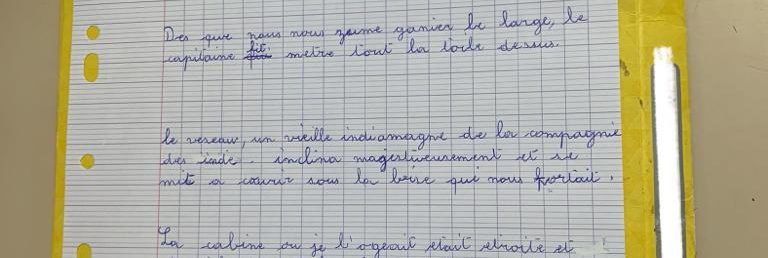 Des que nous nous zume ganier le large, le
capitaine fit metre tout la toile dessus.
le veseau, un vieille indiamagne de la compagnie
des inde. inclina magestiveusement et se
mit a courir sous la brise qui nous portait.
La cabine ou je l'ogeait était etroite et